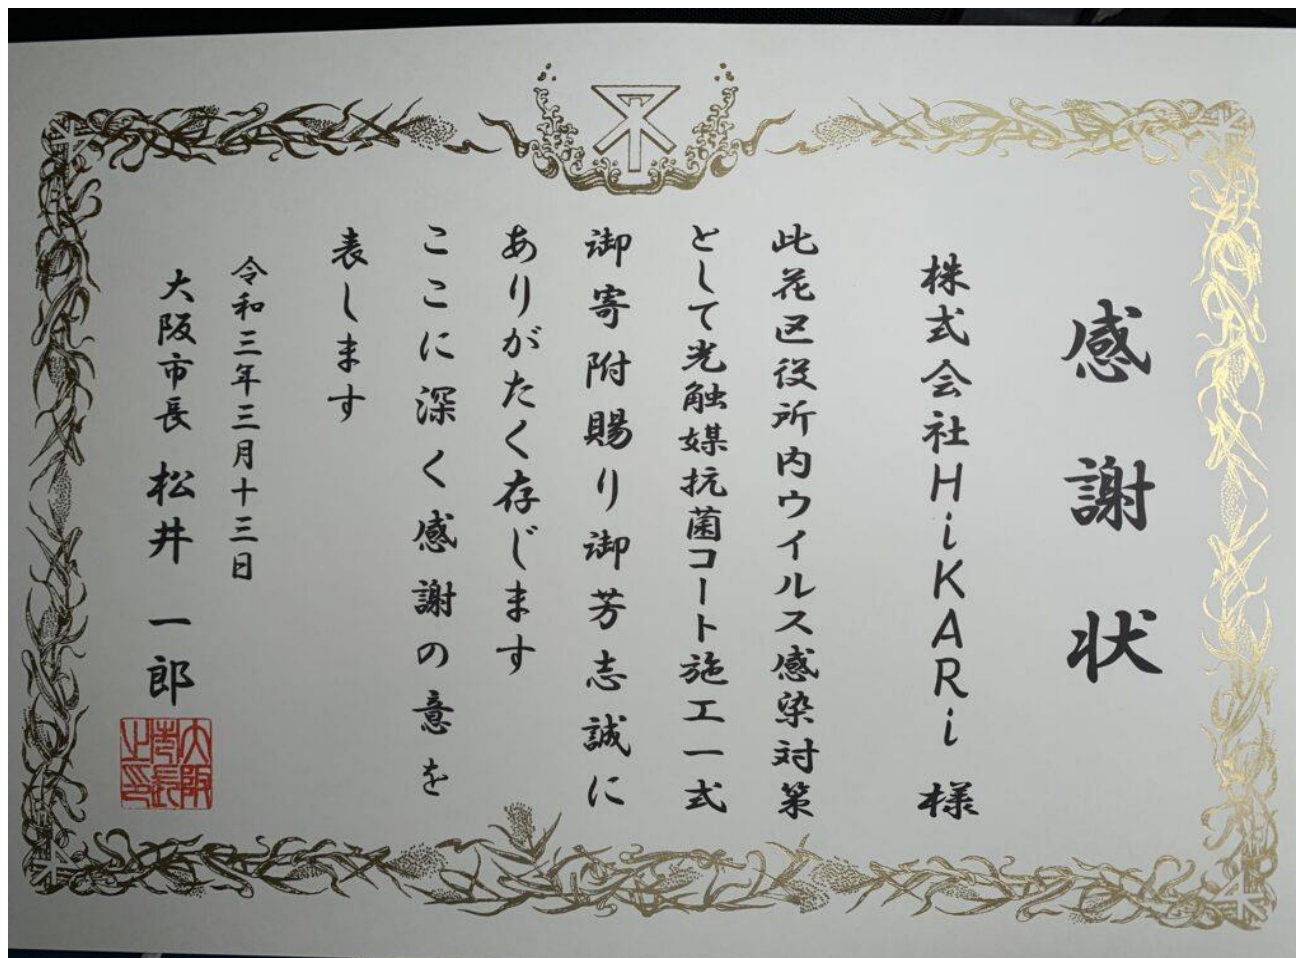 感謝状
株式会社HiKARi 様
此花区役所内ウイルス感染対策
として光触媒抗菌コート施工一式
御寄附賜り御芳志誠に
ありがたく存じます
ここに深く感謝の意を
表します
令和三年三月十三日
大阪市長 松井 一郎
大阪市長之印